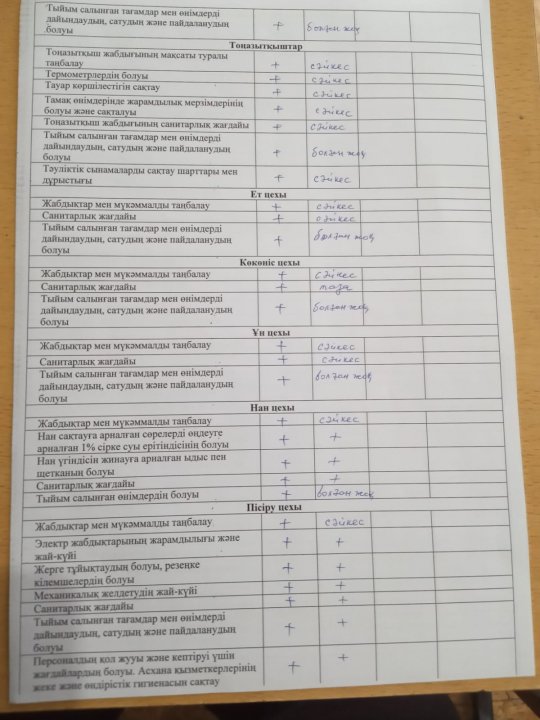 Тыйым салынған тағамдар мен өнімдерді
дайындаудың, сатудың және пайдаланудың + болған жоқ
болуы
Тоңазытқыштар
Тоңазытқыш жабдығының мақсаты туралы
таңбалау + сәйкес
Термометрлердің болуы + сәйкес
Тауар көршілестігін сақтау + сәйкес
Тамақ өнімдерінде жарамдылық мерзімдерінің
болуы және сақталуы + сәйкес
Тоңазытқыш жабдығының санитарлық жағдайы + сәйкес
Тыйым салынған тағамдар мен өнімдерді
дайындаудың, сатудың және пайдаланудың + болған жоқ
болуы
Тәуліктік сынамаларды сақтау шарттары мен
дұрыстығы + сәйкес
Ет цехы
Жабдықтар мен мүкәммалды таңбалау + сәйкес
Санитарлық жағдайы + сәйкес
Тыйым салынған тағамдар мен өнімдерді
дайындаудың, сатудың және пайдаланудың + болған жоқ
болуы
Көкөніс цехы
Жабдықтар мен мүкәммалды таңбалау + сәйкес
Санитарлық жағдайы + таза
Тыйым салынған тағамдар мен өнімдерді
дайындаудың, сатудың және пайдаланудың + болған жоқ
болуы
Ұн цехы
Жабдықтар мен мүкәммалды таңбалау + сәйкес
Санитарлық жағдайы + сәйкес
Тыйым салынған тағамдар мен өнімдерді
дайындаудың, сатудың және пайдаланудың + болған жоқ
болуы
Нан цехы
Жабдықтар мен мүкәммалды таңбалау + сәйкес
Нан сақтауға арналған сөрелерді өңдеуге
арналған 1% сірке суы ерітіндісінің болуы + +
Нан үгіндісін жинауға арналған ыдыс пен
щетканың болуы + +
Санитарлық жағдайы + +
Тыйым салынған өнімдердің болуы + болған жоқ
Пісіру цехы
Жабдықтар мен мүкәммалды таңбалау + сәйкес
Электр жабдықтарының жарамдылығы және
жай-күйі + +
Жерге тұйықтаудың болуы, резеңке
кілемшелердің болуы + +
Механикалық желдетудің жай-күйі + +
Санитарлық жағдайы + +
Тыйым салынған тағамдар мен өнімдерді
дайындаудың, сатудың және пайдаланудың + +
болуы
Персоналдың қол жууы және кептіруі үшін
жағдайлардың болуы. Асхана қызметкерлерінің + +
жеке және өндірістік гигиенасын сақтау